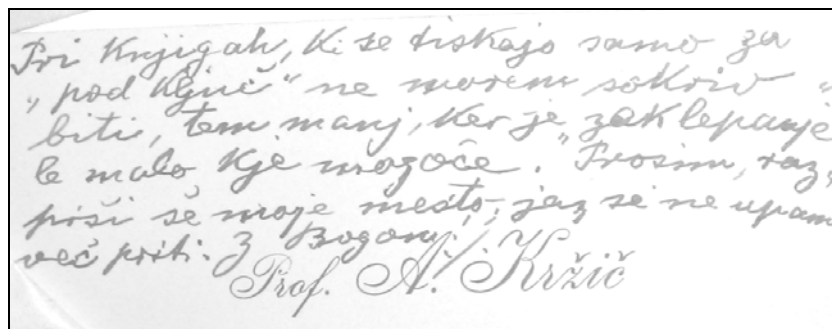 Pri knjigah, ki se tiskajo samo za
„pod ključ“ ne morem sokriv
biti, tem manj, ker je zaklepanje
le malo kje mogoče. Prosim, raz-
piši še moje mesto, jaz si ne upam
več priti. Z Bogom!
Prof. A. Kržič